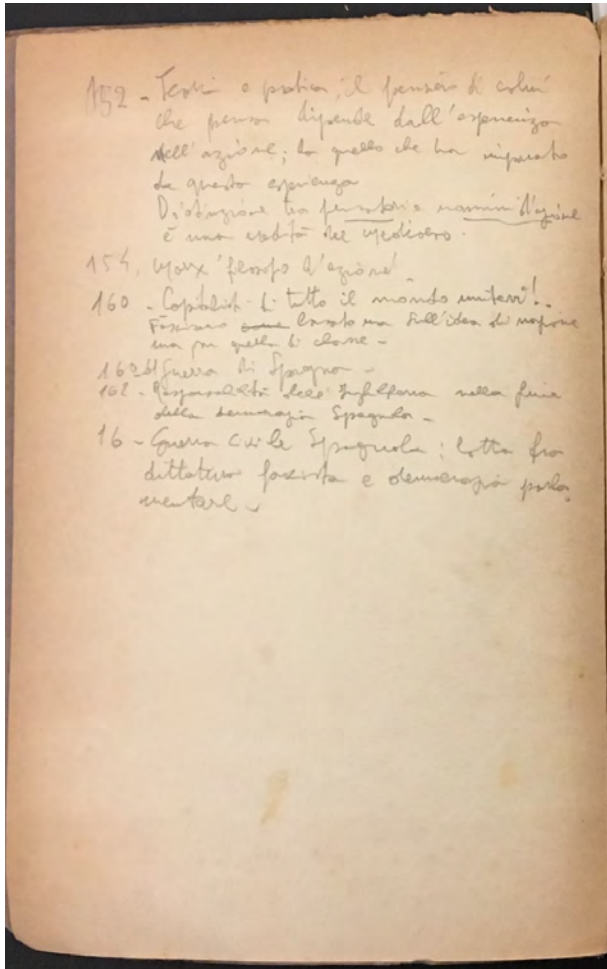 152 - Teoria e pratica; il pensiero di colui
che pensa dipende dall'esperienza
dell'azione; da quello che ha imparato
da questa esperienza
Distinzione tra pensatori e uomini d'azione
è una eredità del Medioevo.
154. Marx 'filosofo d'azione'
160 - Capitalisti di tutto il mondo unitevi!
Fascismo sull'idea di nazione
ma su quella di classe -
Guerra di Spagna -
162 - Responsabilità dell'Inghilterra nella fine
della democrazia Spagnola -
16 - Guerra Civile Spagnola: lotta fra
dittatura fascista e democrazia parla
mentare -